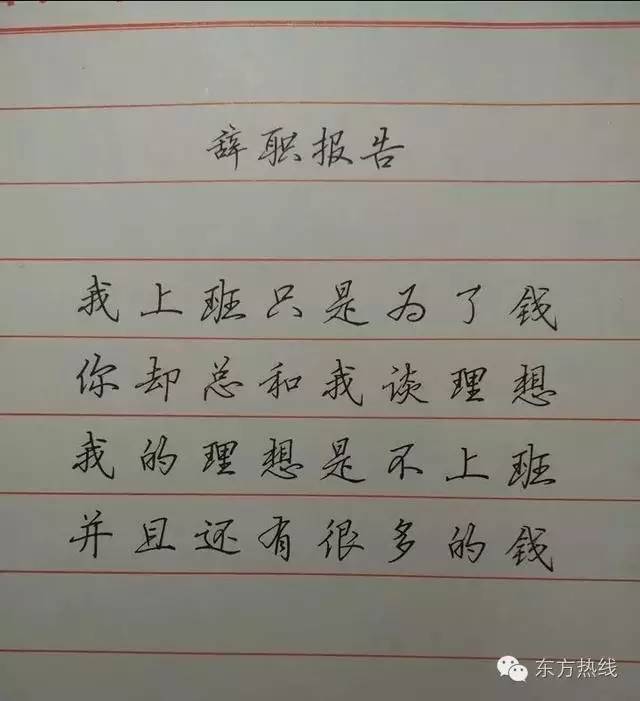 辞职报告
我上班只是为了钱
你却总和我谈理想
我的理想是不上班
并且还有很多的钱
东方热线